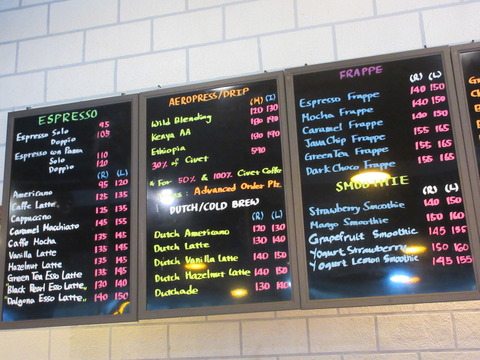 ESPRESSO
Espresso Solo 95
Doppio 105
Espresso con Panna
Solo 110
Doppio 120
(R) (L)
Americano 95 120
Caffe Latte 125 135
Cappuccino 125 135
Caramel Macchiato 145 155
Caffe Mocha 135 145
Vanilla Latte 135 145
Hazelnut Latte 135 145
Green Tea Esso Latte 135 145
"Black Pearl Esso Latte" 130 140
"Dalgona Esso Latte" 140 150
AEROPRESS/DRIP
(H) (I)
Wild Blending 120 130
Kenya AA 180 190
Ethiopia 180 190
30% of Civet 590
* For 50% & 100% Civet Coffee
Advanced Order Plz.
DUTCH/COLD BREW
(R) (L)
Dutch Americano 120 130
Dutch Latte 130 140
Dutch Vanilla Latte 140 150
Dutch Hazelnut Latte 140 150
Dutchade 130 140
FRAPPE
(R) (L)
Espresso Frappe 140 150
Mocha Frappe 140 150
Caramel Frappe 140 150
Java Chip Frappe 155 165
Green Tea Frappe 155 165
Dark Choco Frappe 155 165
SMOOTHIE
(R) (L)
Strawberry Smoothie 140 150
Mango Smoothie 150 160
Grapefruit Smoothie 145 155
Yogurt Strawberry 150 160
Yogurt Lemon Smoothie 145 155